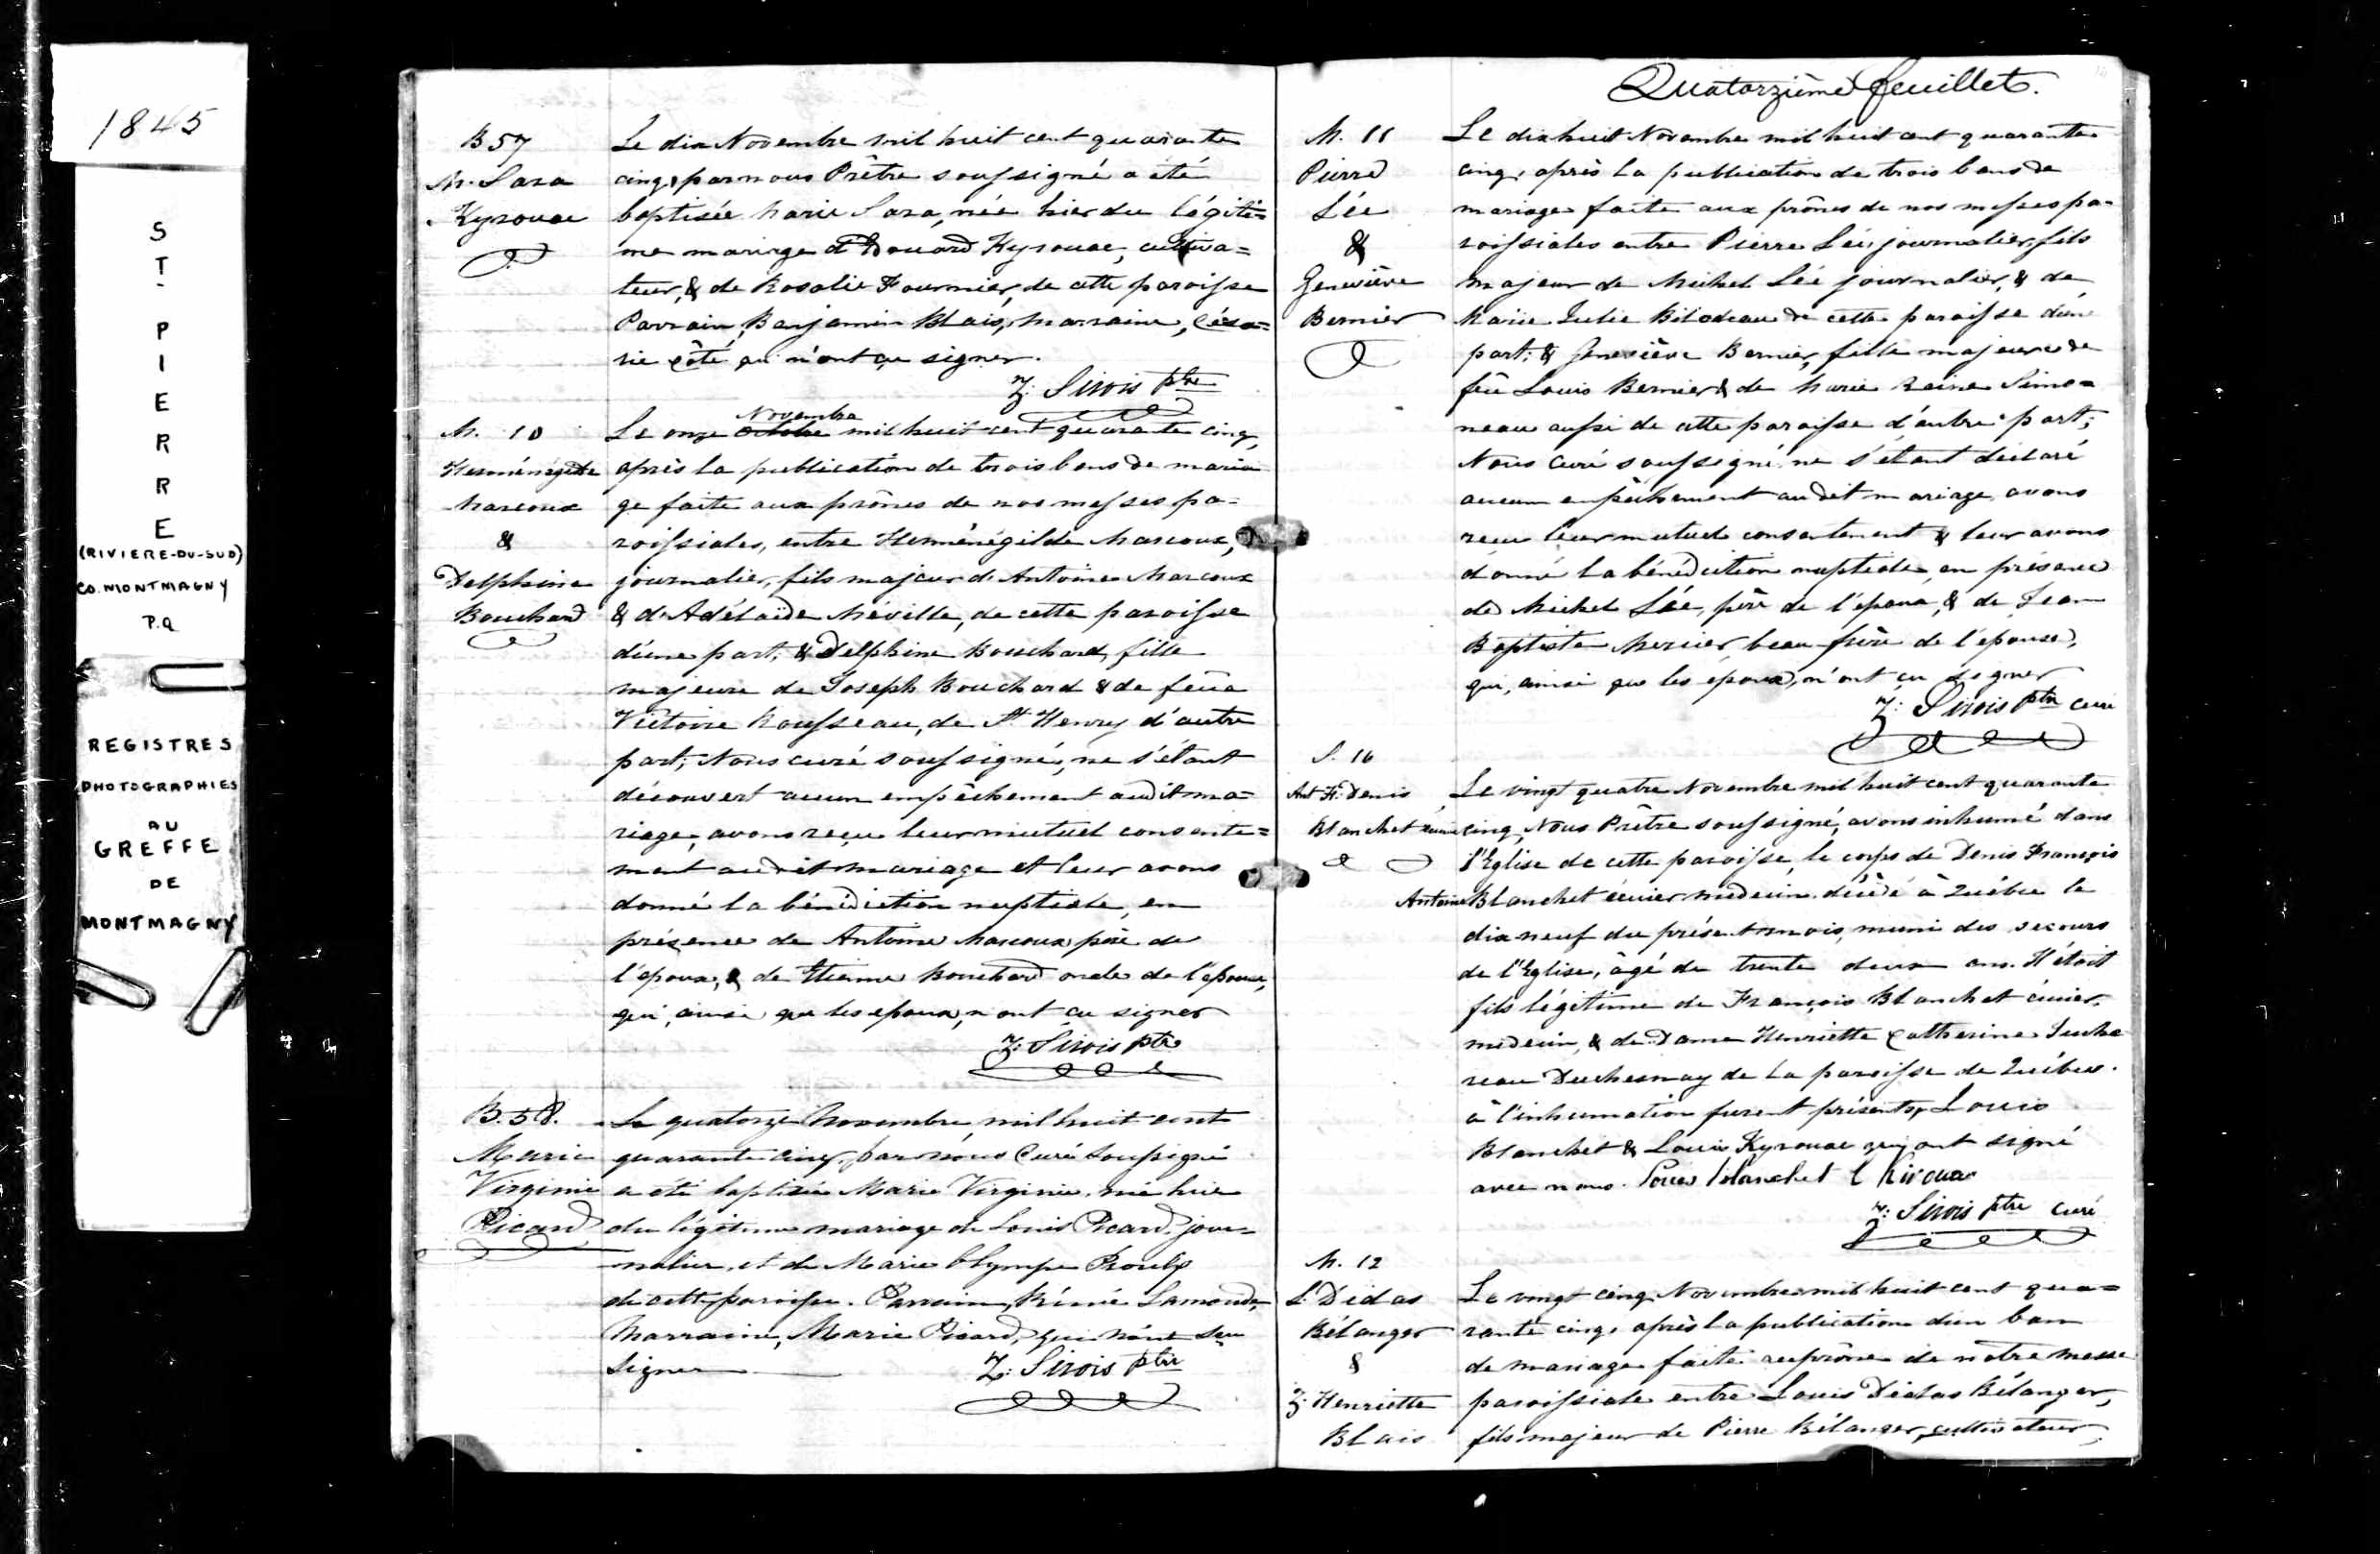 1845
ST. PIERRE
(RIVIERE-DU-SUD)
CO. MONTMAGNY
P.Q
REGISTRES
PHOTOGRAPHIES
AU
GREFFE
DE
MONTMAGNY
B 57
M. Sara
Kyrouac
Le dix Novembre mil huit cent quarante
cinq, par nous Prêtre soussigné a été
baptisée Marie Sara, née hier du légiti=
me mariage d'Edouard Kyrouac, cultiva=
teur, & de Rosalie Fournier, de cette paroisse
Parrain, Benjamin Blais, Marraine, Césa=
rie Côté qui n'ont çu signer.
Z: Sirois ptre
M. 10
Herménégilde
Marcoux
&
Delphine
Bouchard
Novembre
Le onze octobre mil huit cent quarante cinq,
après la publication de trois bans de maria
ge faite aux prônes de nos messes pa=
roissiales, entre Herménégilde Marcoux,
journalier, fils majeur de Antoine Marcoux
& d'Adélaïde Méville, de cette paroisse
d'une part, & Delphine Bouchard, fille
majeure de Joseph Bouchard & de feüe
Victoire Rousseau, de St Henry d'autre
part; Nous curé soussigné, ne s'étant
découvert aucun empêchement audit ma=
riage, avons reçu leur mutuel consente=
ment audit mariage et leur avons
donné la bénédiction nuptiale, en
présence de Antoine Marcoux père de
l'epoux, & de Etienne Bouchard oncle de l'epouse,
qui, ainsi que les epoux, n'ont çu signer
Z: Sirois ptre
B. 58.
Marie
Virginie
Picard
Le quatorze Novembre, mil huit cent
quarante cinq, par nous Curé soussigné
a été baptisée Marie Virginie, née hier
du légitime mariage de Louis Picard, jour=
nalier, et de Marie Olympe Proulx
de cette paroisse. Parrain, Rémie Lamonde,
Marraine, Marie Picard, qui n'ont seu
signer
Z: Sirois ptre
Quatorzième feuillet.
M. 11
Pierre
Lée
&
Geneviève
Bernier
Le dix huit Novembre mil huit cent quarante
cinq, après la publication de trois bans de
mariage faite aux prônes de nos messes pa=
roissiales entre Pierre Lée, journalier, fils
majeur de Michel Lée, journalier, & de
Marie Julie Bilodeau de cette paroisse d'une
part; & Geneviève Bernier, fille majeure de
feu Louis Bernier & de Marie Reine Simo=
neau aussi de cette paroisse d'autre part;
Nous Curé soussigné ne s'étant déclaré
aucun empêchement audit mariage, avons
reçu leur mutuel consentement & leur avons
donné la bénédiction nuptiale, en présence
de Michel Lée, père de l'epoux, & de Jean
Baptiste Mercier, beau frère de l'epouse,
qui, ainsi que les epoux, n'ont çu signer
Z: Sirois ptre curé
S. 16
Ant. Fr. Denis
Blanchet
Le vingt quatre Novembre mil huit cent quarante
cinq, Nous Prêtre soussigné, avons inhumé dans
l'Eglise de cette paroisse, le corps de Denis François
Antoine Blanchet écuier medecin, décédé à Québec le
dix neuf du présent mois, muni des secours
de l'Eglise, âgé de trente deux ans. Il était
fils légitime de François Blanchet écuier,
medecin, & de Dame Henriette Catherine Juche
reau Duchesnay de la paroisse de Québec.
à l'inhumation furent présents, Louis
Blanchet & Louis Kyrouac qui ont signé
avec nous. Louis Blanchet L Kirouac
Z: Sirois ptre curé
M. 12
L. Didas
Bélanger
&
Z. Henriette
Blais
Le vingt cinq Novembre mil huit cent qua=
rante cinq, après la publication d'un ban
de mariage faite au prône de nôtre messe
paroissiale entre Louis Didas Bélanger,
fils majeur de Pierre Bélanger, cultivateur,